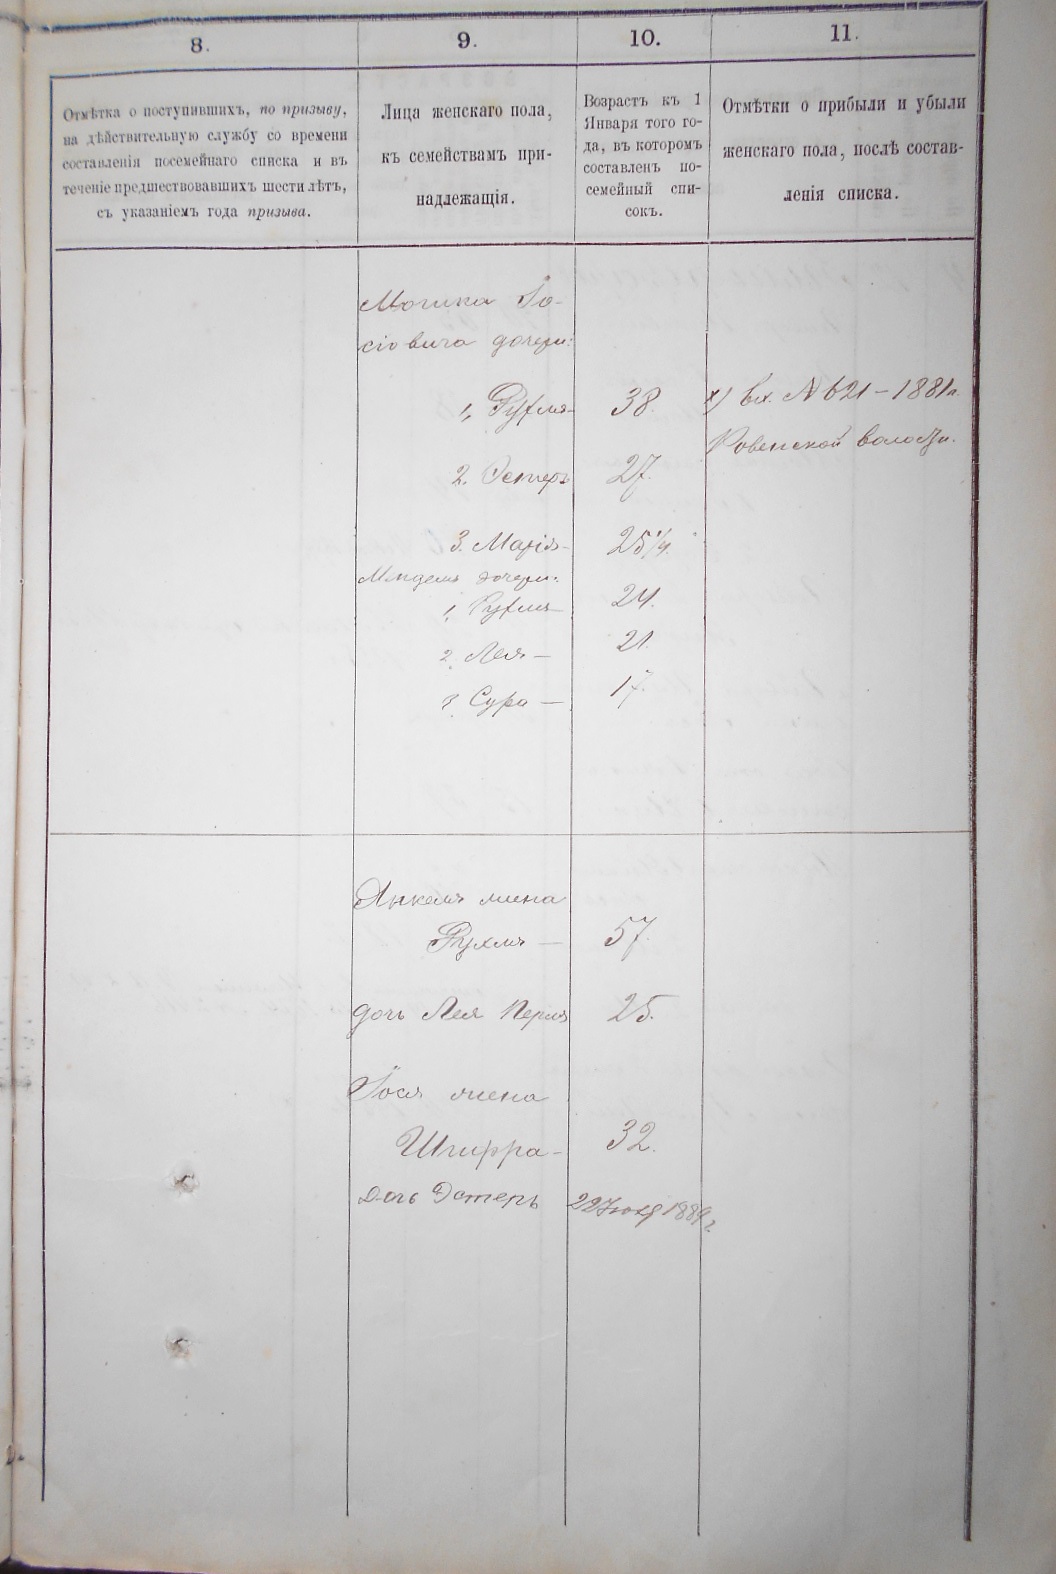 8.
9.
10.
11.
Отмѣтка о поступившихъ, по призыву,
на дѣйствительную службу со времени
составленія посемейнаго списка и въ
теченіе предшествовавшихъ шести лѣтъ,
съ указаніемъ года призыва.
Лица женскаго пола,
къ семействамъ при-
надлежащія.
Возрастъ къ 1
Января того го-
да, въ которомъ
составленъ по-
семейный спи-
сокъ.
Отмѣтки о прибыли и убыли
женскаго пола, послѣ состав-
ленія списка.
Мошка Іо-
сіовича дочери:
1, Рухля - 38.
х) Вх. № 621 - 1881 г.
Ровенской волости.
2. Эстеръ 27.
3. Марія - 25 1/4.
дочери:
1, Рухля - 24.
2. Лея - 21.
3. Сура - 17.
Янкеля жена
Рухля - 57.
дочь Лея Перля 25.
Іося жена
Шифра - 32.
Дочь Эстеръ 22 1889 г